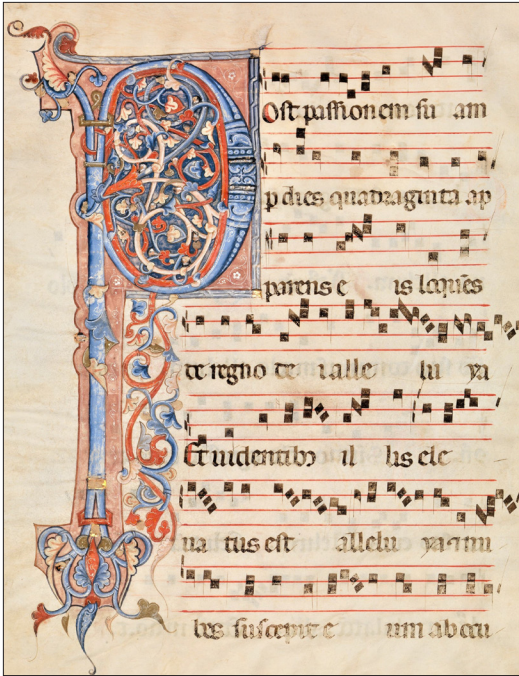 POst passionem su am
p dies quadraginta ap
parens e is loquēs
de regno de i alle lu ya
Et uidentibꝫ il lis ele
ua tus est allelu ya et nu
bes suscepit e um ab ocu